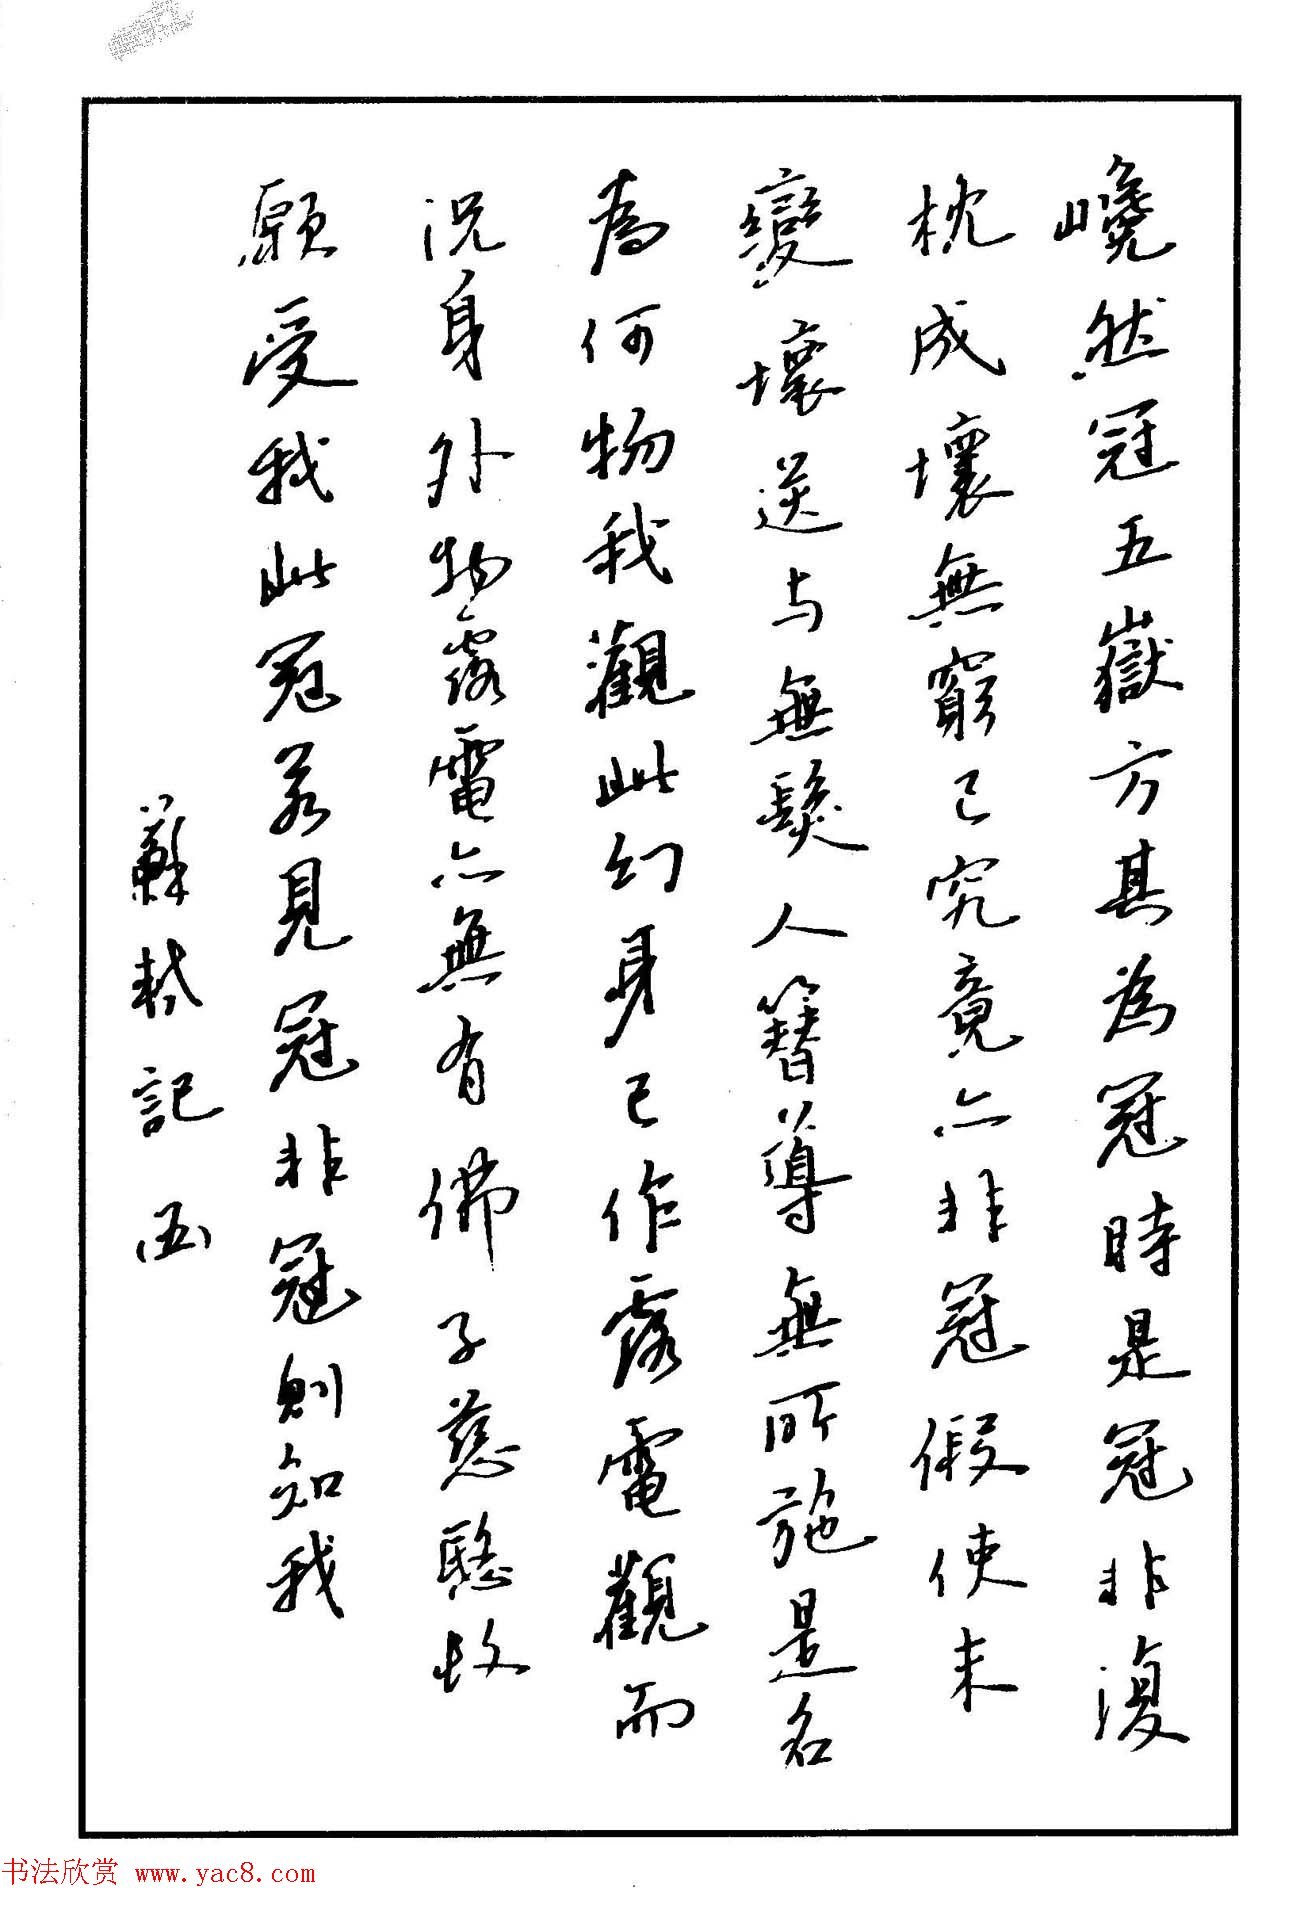 巉然冠五嶽方其為冠時是冠非復
枕成壞無窮已究竟亦非冠假使未
變壞送与無髮人簪導無所施是名
為何物我觀此幻身已作露電觀而
況身外物露電亦無有佛子慈愍故
願受我此冠若見冠非冠則知我
蘇 記
书法欣赏 www.yac8.com